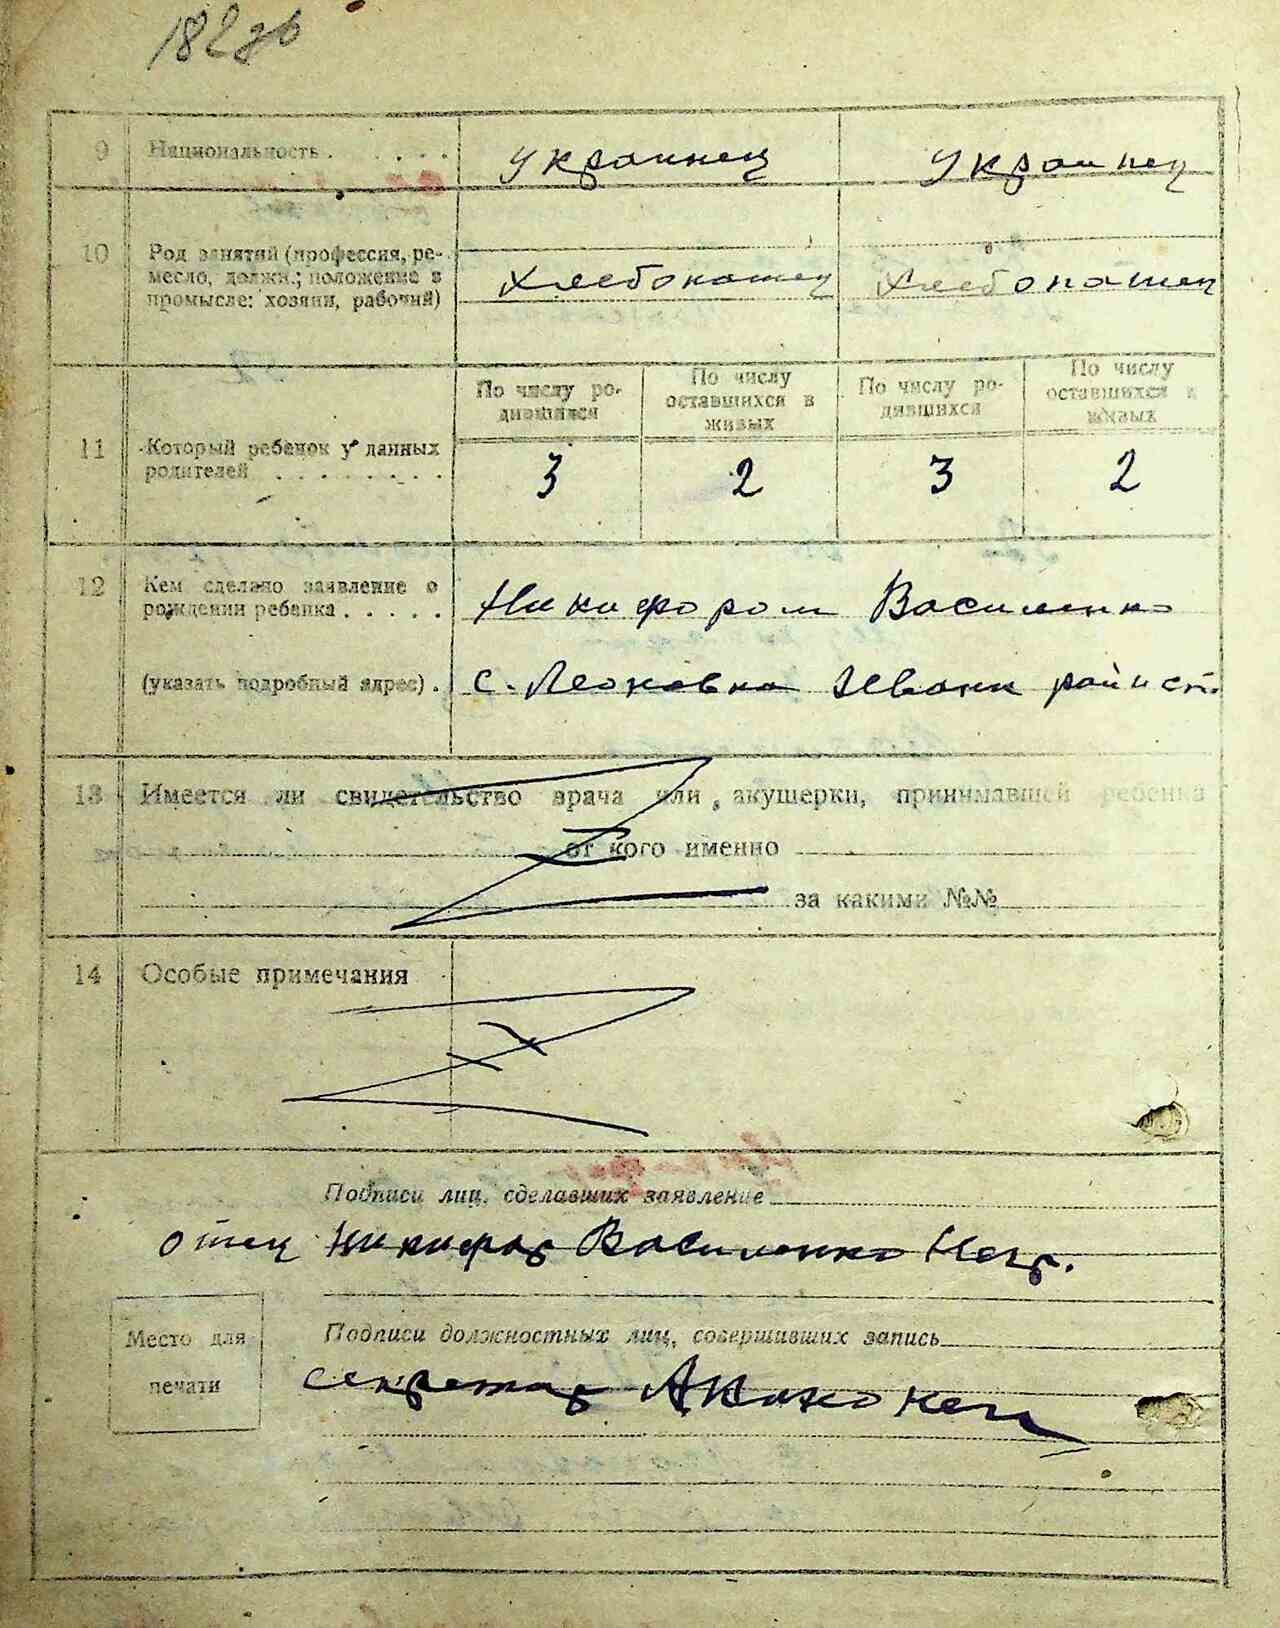 182 зв
9 Национальность . . . . . украинец украинец
10 Род занятий (профессия, ре-
месло, должн.; положение в
промысле: хозяин, рабочий)
хлебопашец хлебопашец
По числу ро-
дившихся
По числу
оставшихся в
живых
По числу ро-
дившихся
По числу
оставшихся в
живых
11 Который ребенок у данных
родителей . . . . . . . .
3 2 3 2
12 Кем сделано заявление о
рождении ребенка . . . . .
Никифором Василенко
(указать подробный адрес) . с. Леоновка Иванк район
13 Имеется ли свидетельство врача или акушерки, принимавшей ребенка
от кого именно
за какими №№
14 Особые примечания
Подписи лиц, сделавших заявление
отец Никифор Василенко Негр.
Место для
печати
Подписи должностных лиц, совершивших запись
секретар